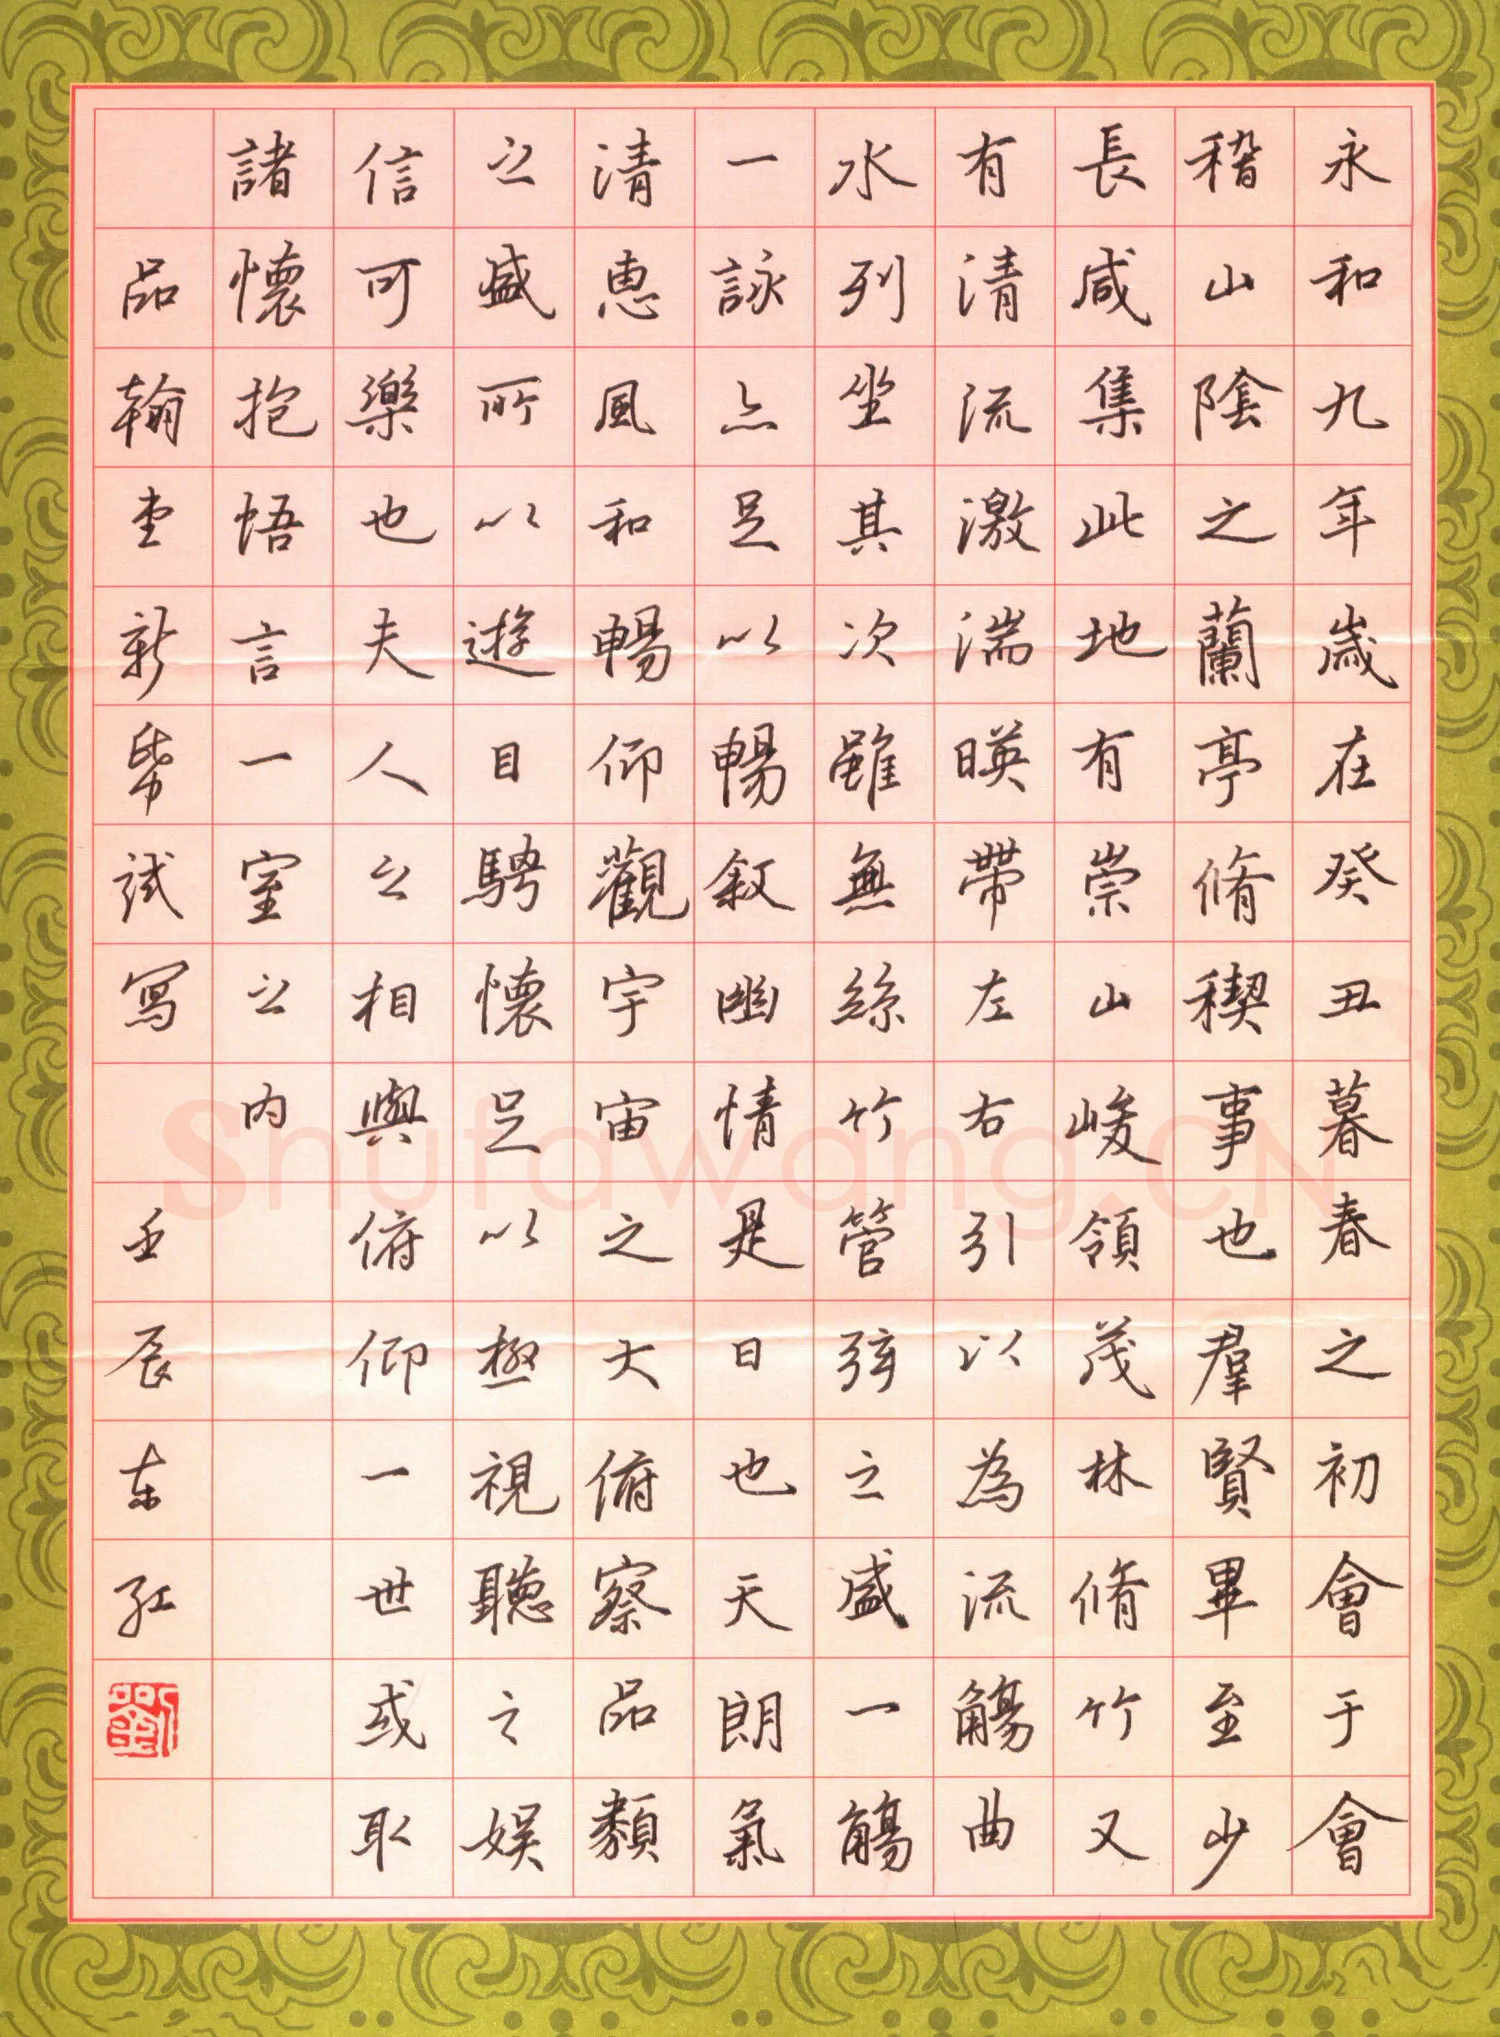 永和九年歲在癸丑暮春之初會于會
稽山陰之蘭亭脩稧事也羣賢畢至少
長咸集此地有崇山峻領茂林脩竹又
有清流激湍暎帶左右引以為流觴曲
水列坐其次雖無絲竹管弦之盛一觴
一詠亦足以暢敘幽情是日也天朗氣
清惠風和暢仰觀宇宙之大俯察品類
之盛所以遊目騁懷足以極視聽之娛
信可樂也夫人之相與俯仰一世或取
諸懷抱悟言一室之内
品翰堂新筆試寫 壬辰东红
劉
Shufawang.CN